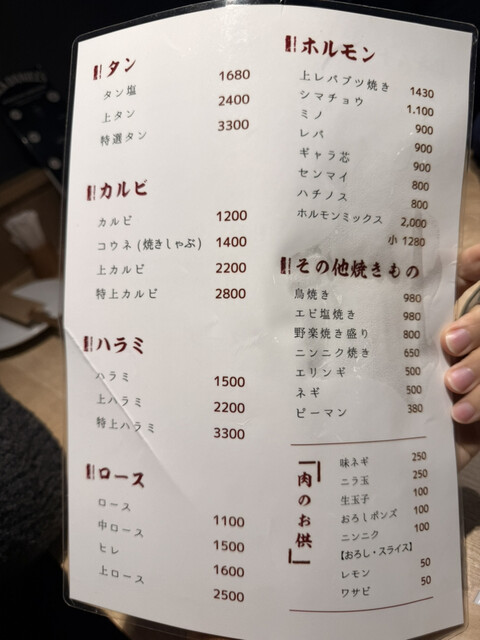 タン
タン塩 1680
上タン 2400
特選タン 3300
カルビ
カルビ 1200
コウネ(焼きしゃぶ) 1400
上カルビ 2200
特上カルビ 2800
ハラミ
ハラミ 1500
上ハラミ 2200
特上ハラミ 3300
ロース
ロース 1100
中ロース 1500
ヒレ 1600
上ロース 2500
ホルモン
上レバブツ焼き 1430
シマチョウ 1.100
ミノ 900
レバ 900
ギャラ芯 900
センマイ 800
ハチノス 800
ホルモンミックス 2,000
小 1280
その他焼きもの
鳥焼き 980
エビ塩焼き 980
野楽焼き盛り 800
ニンニク焼き 650
エリンギ 500
ネギ 500
ピーマン 380
「肉のお供」
味ネギ 250
ニラ玉 250
生玉子 100
おろしポンズ 100
ニンニク 100
【おろし・スライス】
レモン 50
ワサビ 50